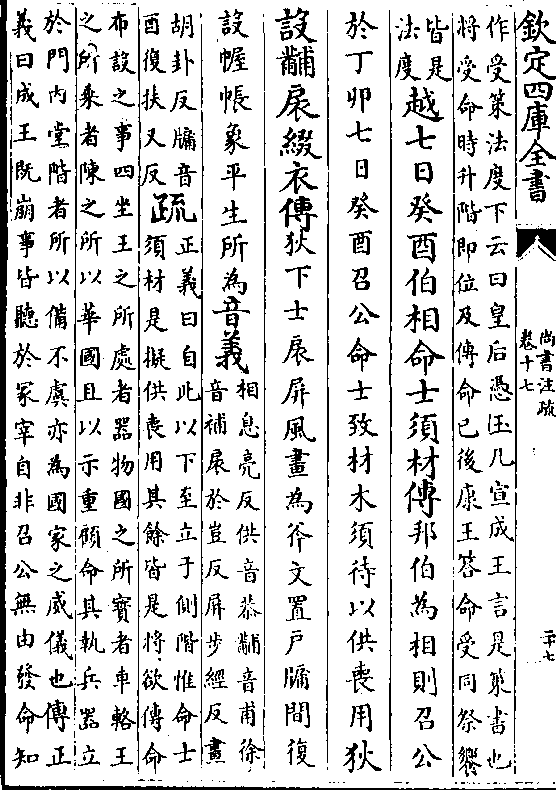 欽定四庫全書
尚書注疏
卷十七
二十七
作受策法度下云曰皇后憑玉几宣成王言是策書也
將受命時升階即位及傳命已後康王答命受同祭饗
皆是
法度越七日癸酉伯相命士須材傳邦伯為相則召公
於丁卯七日癸酉召公命士致材木須待以供喪用狄
設黼扆綴衣傳狄下士扆屏風畫為斧文置戶牖間復
設幄帳象平生所為音義
相息亮反供音恭黼音甫徐
音補扆於豈反屏步經反畫
胡卦反牖音
酉復扶又反疏
正義曰自此以下至立于側階惟命士
須材是擬供喪用其餘皆是將欲傳命
布設之事四坐王之所處者器物國之所寶者車輅王
之所乘者陳之所以華國且以示重顧命其執兵器立
於門内堂階者所以備不虞亦為國家之威儀也傳正
義曰成王既崩事皆聽於冢宰自非召公無由發命知